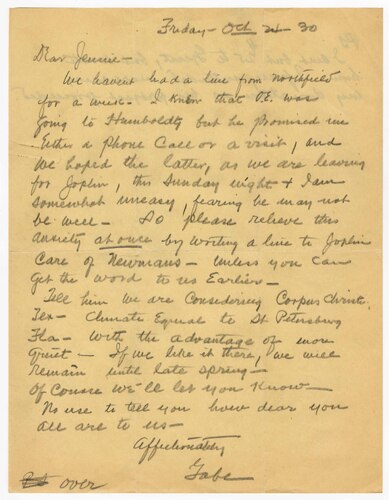 Friday - Oct 24 - 30
Dear Jennie -
We havent had a line from Northfield
for a week - I know that O.E. was
going to Humboldt but he promised me
Either a Phone Call or a visit, and
we hoped the latter, as we are leaving
for Joplin, this Sunday night & I am
somewhat uneasy, fearing he may not
be well - So please relieve this
anxiety at once by writing a line to Joplin
Care of Newmans - Unless you can
get the word to us Earlier -
Tell him we are Considering Corpus Christi,
Tex - Climate Equal to St Petersburg
Fla - With the advantage of more
Quiet - If we like it there, we will
remain until late Spring -
Of Course we'll let you Know -
No use to tell you how dear you
all are to us -
Affectionately
Gabe
over